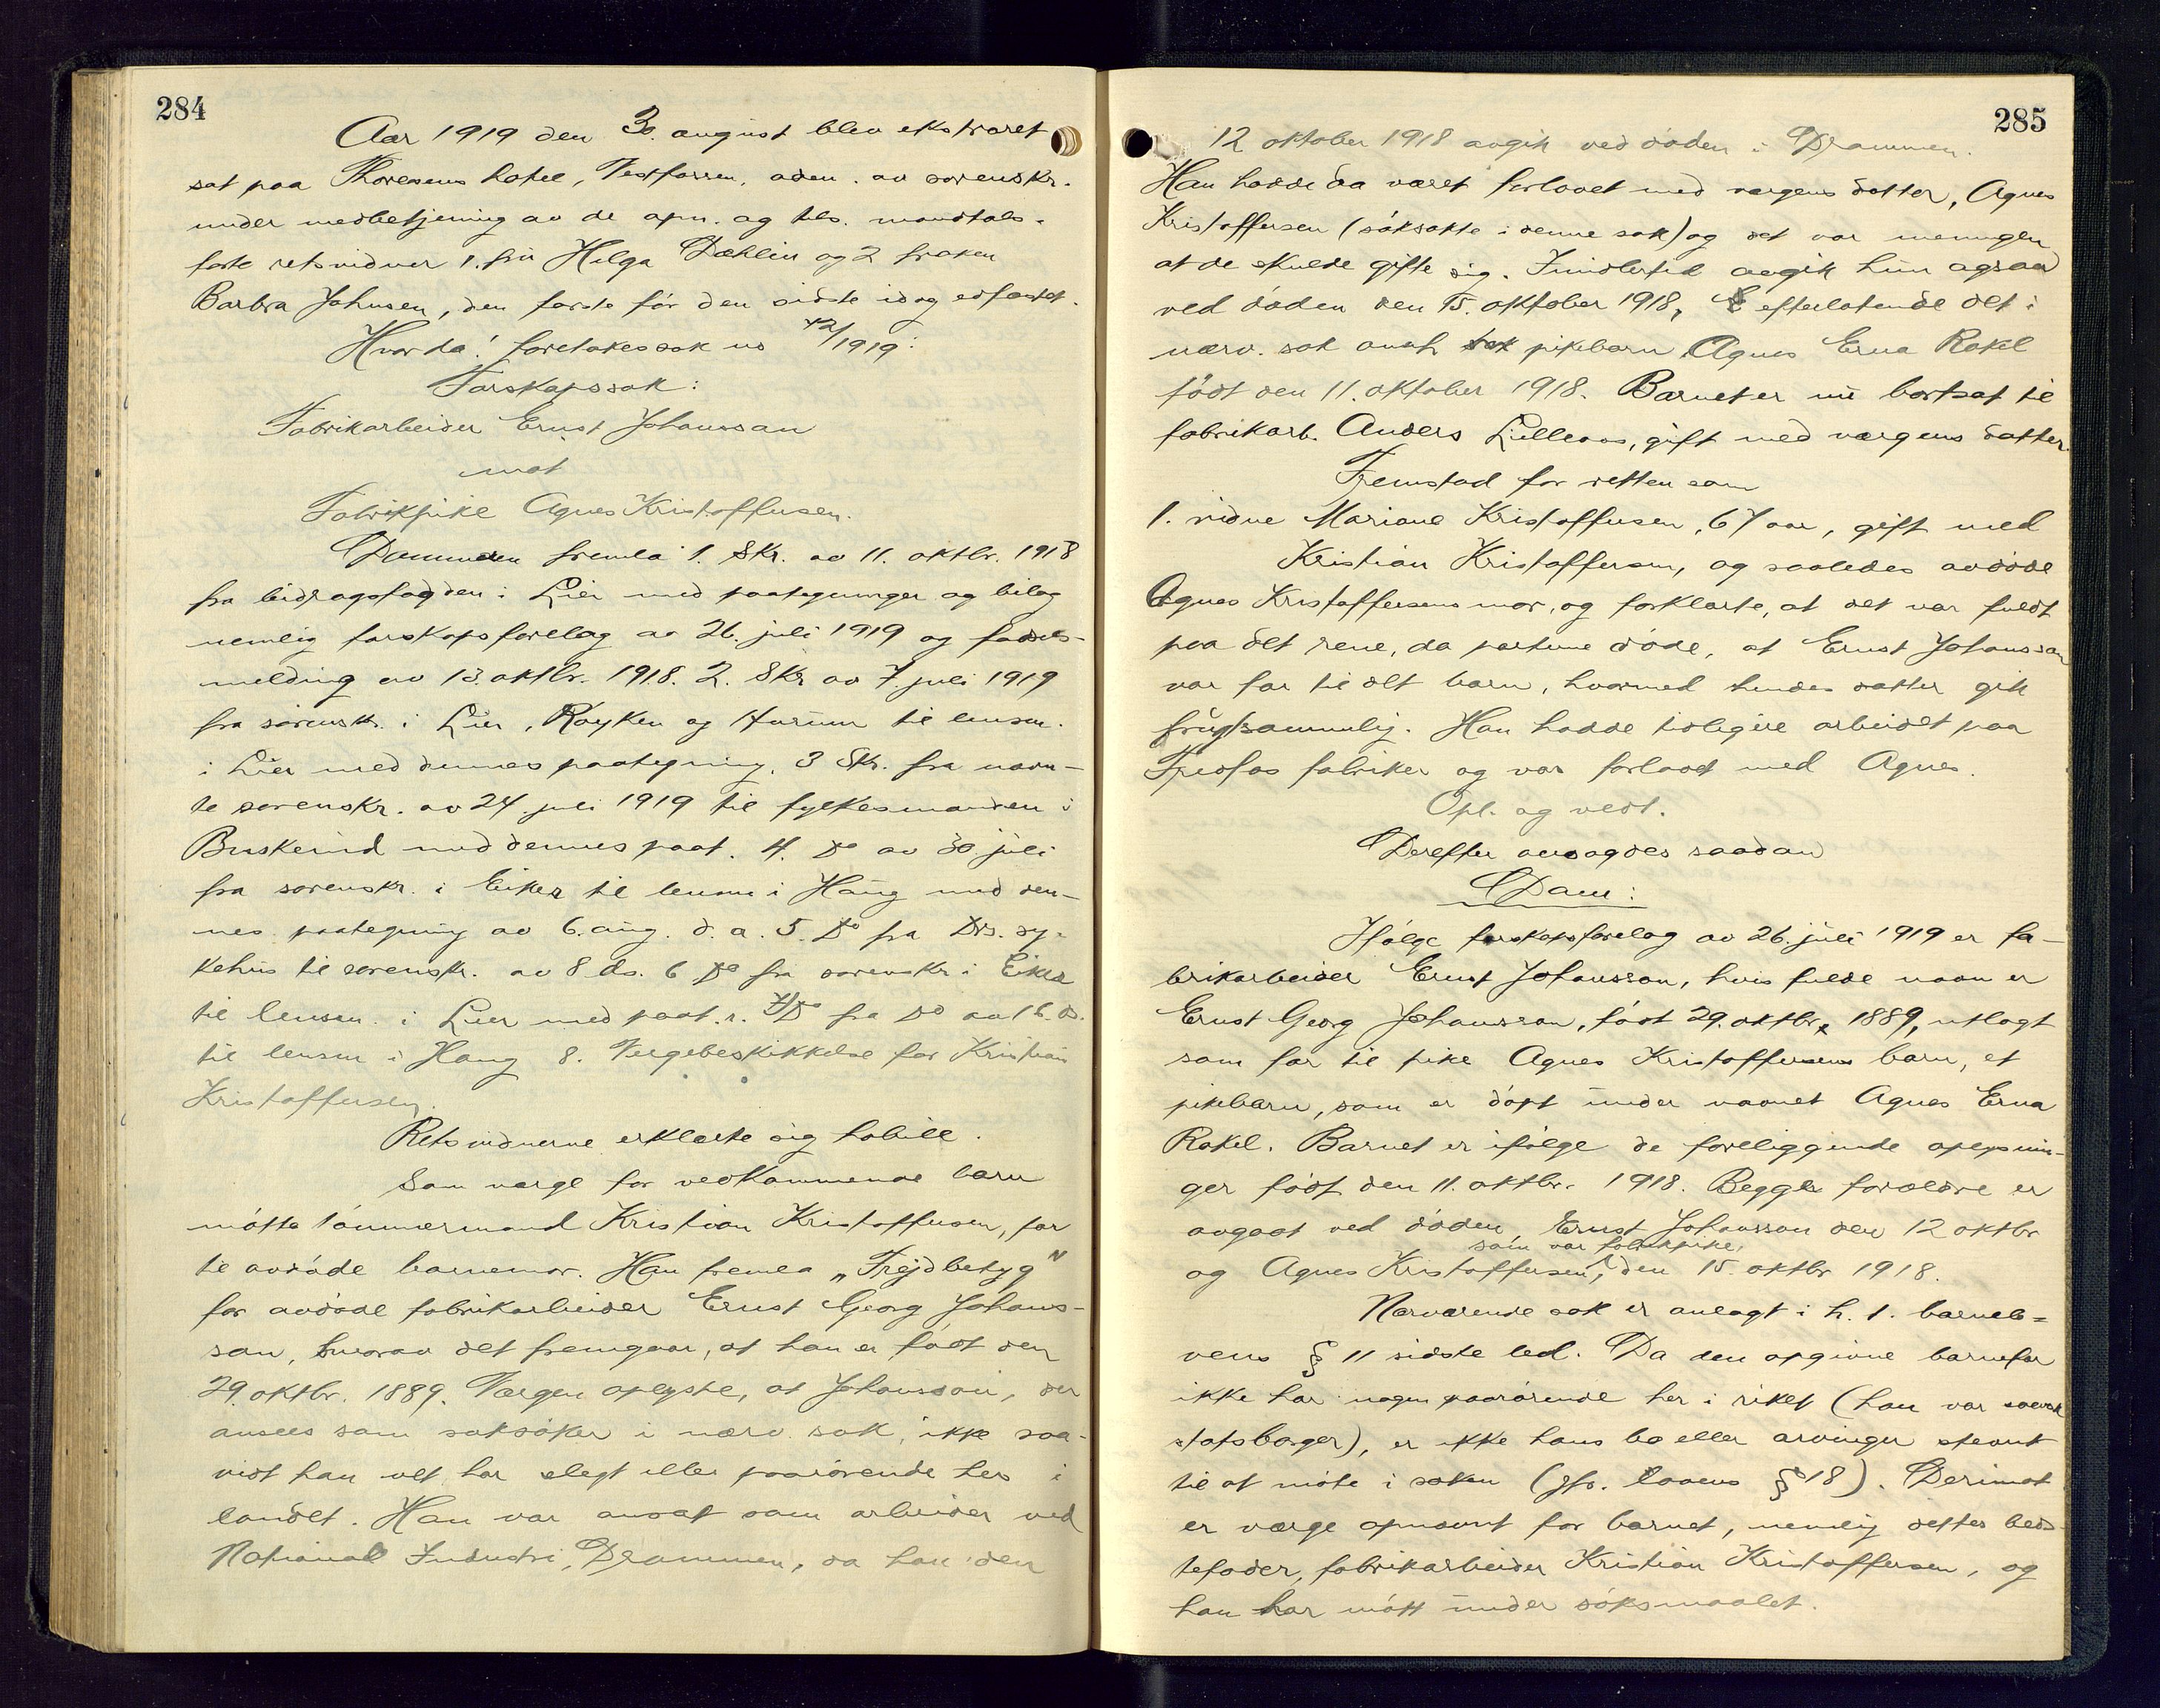 284
Aar 1919 den 30. august blev ekstraret
sat paa Thoresens hotel, Vestfossen, adm. av sorenskr.
under medbetjening av de opn. og tils. mandtals-
førte retsvidner 1. fru Helga Dæhlin og 2 frøken
Barbra Johnsen, den første før den sidste idag edfæstet.
Hvorda! foretokes sak no 42/1919:
Farskapssak:
Fabrikarbeider Ernst Johansson
mot
Fabrikpike Agnes Kristoffersen.
Dommeren fremla 1. Skr. av 11. oktbr. 1918
fra bidragsfogden i Lier med paategninger og bilag
nemlig farskapsforelæg av 26. juli 1919 og fødsels-
melding av 13. oktbr. 1918. 2. Skr av 7 juli 1919
fra sorenskr. i Lier, Røyken og Hurum til lensm.
i Lier med dennes paategning. 3 Skr. fra nævn-
te sorenskr. av 24 juli 1919 til fylkesmanden i
Buskerud med dennes paat. 4. Do av 30 juli
fra sorenskr. i Eiker til lensm i Haug med den-
nes paategning av 6. aug. d. a. 5. Do fra Drs. sy-
kehus til sorenskr. av 8. ds. 6 Do fra sorenskr i Eiker
til lensm. i Lier med paat. r. 7/Do fra Do av 16. ds.
til lensm i Haug 8. Vergebeskikkelse for Kristian
Kristoffersen.
Retsvidnerne erklærte sig habile.
Som værge for vedkommende barn
møtte tømmermand Kristian Kristoffersen, far
til avdøde barnemor. Han fremla „Frejdbetyg"
for avdøde fabrikarbeider Ernst Georg Johans-
son, hvorav det fremgaar, at han er født den
29. oktbr. 1889. Værgen oplyste, at Johansson, der
ansees som saksøker i nærv. sak, ikke saa-
vidt han vet, har slegt eller paarørende her i
landet. Han var ansat som arbeider ved
National Industri, Drammen, da han den
285
12 oktober 1918 avgik ved døden i Drammen.
Han hadde da været forlovet med værgens datter, Agnes
Kristoffersen (saksøkte i denne sak) og det var meningen
at de skulde gifte sig. Imidlertid avgik hun ogsaa
ved døden den 15. oktober 1918, efterlatende det i
nærv. sak omh. pikebarn Agnes Erna Rakel
født den 11. oktober 1918. Barnet er nu bortsat til
fabrikarb. Anders Lilleaas, gift med værgens datter.
Fremstod for retten som
1. vidne Mariane Kristoffersen, 67 aar, gift med
Kristian Kristoffersen, og saaledes avdøde
Agnes Kristoffersens mor, og forklarte, at det var fuldt
paa det rene, da partene døde, at Ernst Johansson
var far til det barn, hvormed hendes datter gik
frugtsommelig. Han hadde tidligere arbeidet paa
Fredfos fabriker og var forlovet med Agnes.
Opl. og vedt.
Derefter avsagdes saadan
Dom:
Ifølge farskapsforelæg av 26. juli 1919 er fa-
brikarbeider Ernst Johansson, hvis fulde navn er
Ernst Georg Johansson, født 29. oktbr. 1889, utlagt
som far til pike Agnes Kristoffersens barn, et
pikebarn, som er døpt under navnet Agnes Erna
Rakel. Barnet er ifølge de foreliggende oplysnin-
ger født den 11. oktbr. 1918. Begge forældre er
avgaat ved døden, Ernst Johansson den 12 oktbr
som var fabrikpike,
og Agnes Kristoffersen, den 15. oktbr 1918.
Nærværende sak er anlagt i h. t. barnelo-
vens § 11 sidste led. Da den opgivne barnefar
ikke har nogen paarørende her i riket (han var svensk
statsborger), er ikke hans bo eller arvinger stevnt
til at møte i saken (jfr. lovens § 18). Derimot
er værge opnævnt for barnet, nemlig dettes beds-
tefader, fabrikarbeider Kristian Kristoffersen, og
han har møtt under søksmaalet.